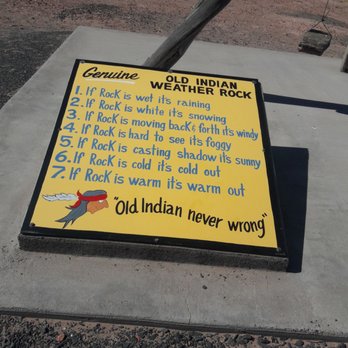 Genuine OLD INDIAN
WEATHER ROCK
1. If Rock is wet its raining
2. If Rock is white its snowing
3. If Rock is moving back & forth its windy
4. If Rock is hard to see its foggy
5. If Rock is casting shadow its sunny
6. If Rock is cold it's cold out
7. If Rock is warm it's warm out
"Old Indian never wrong"